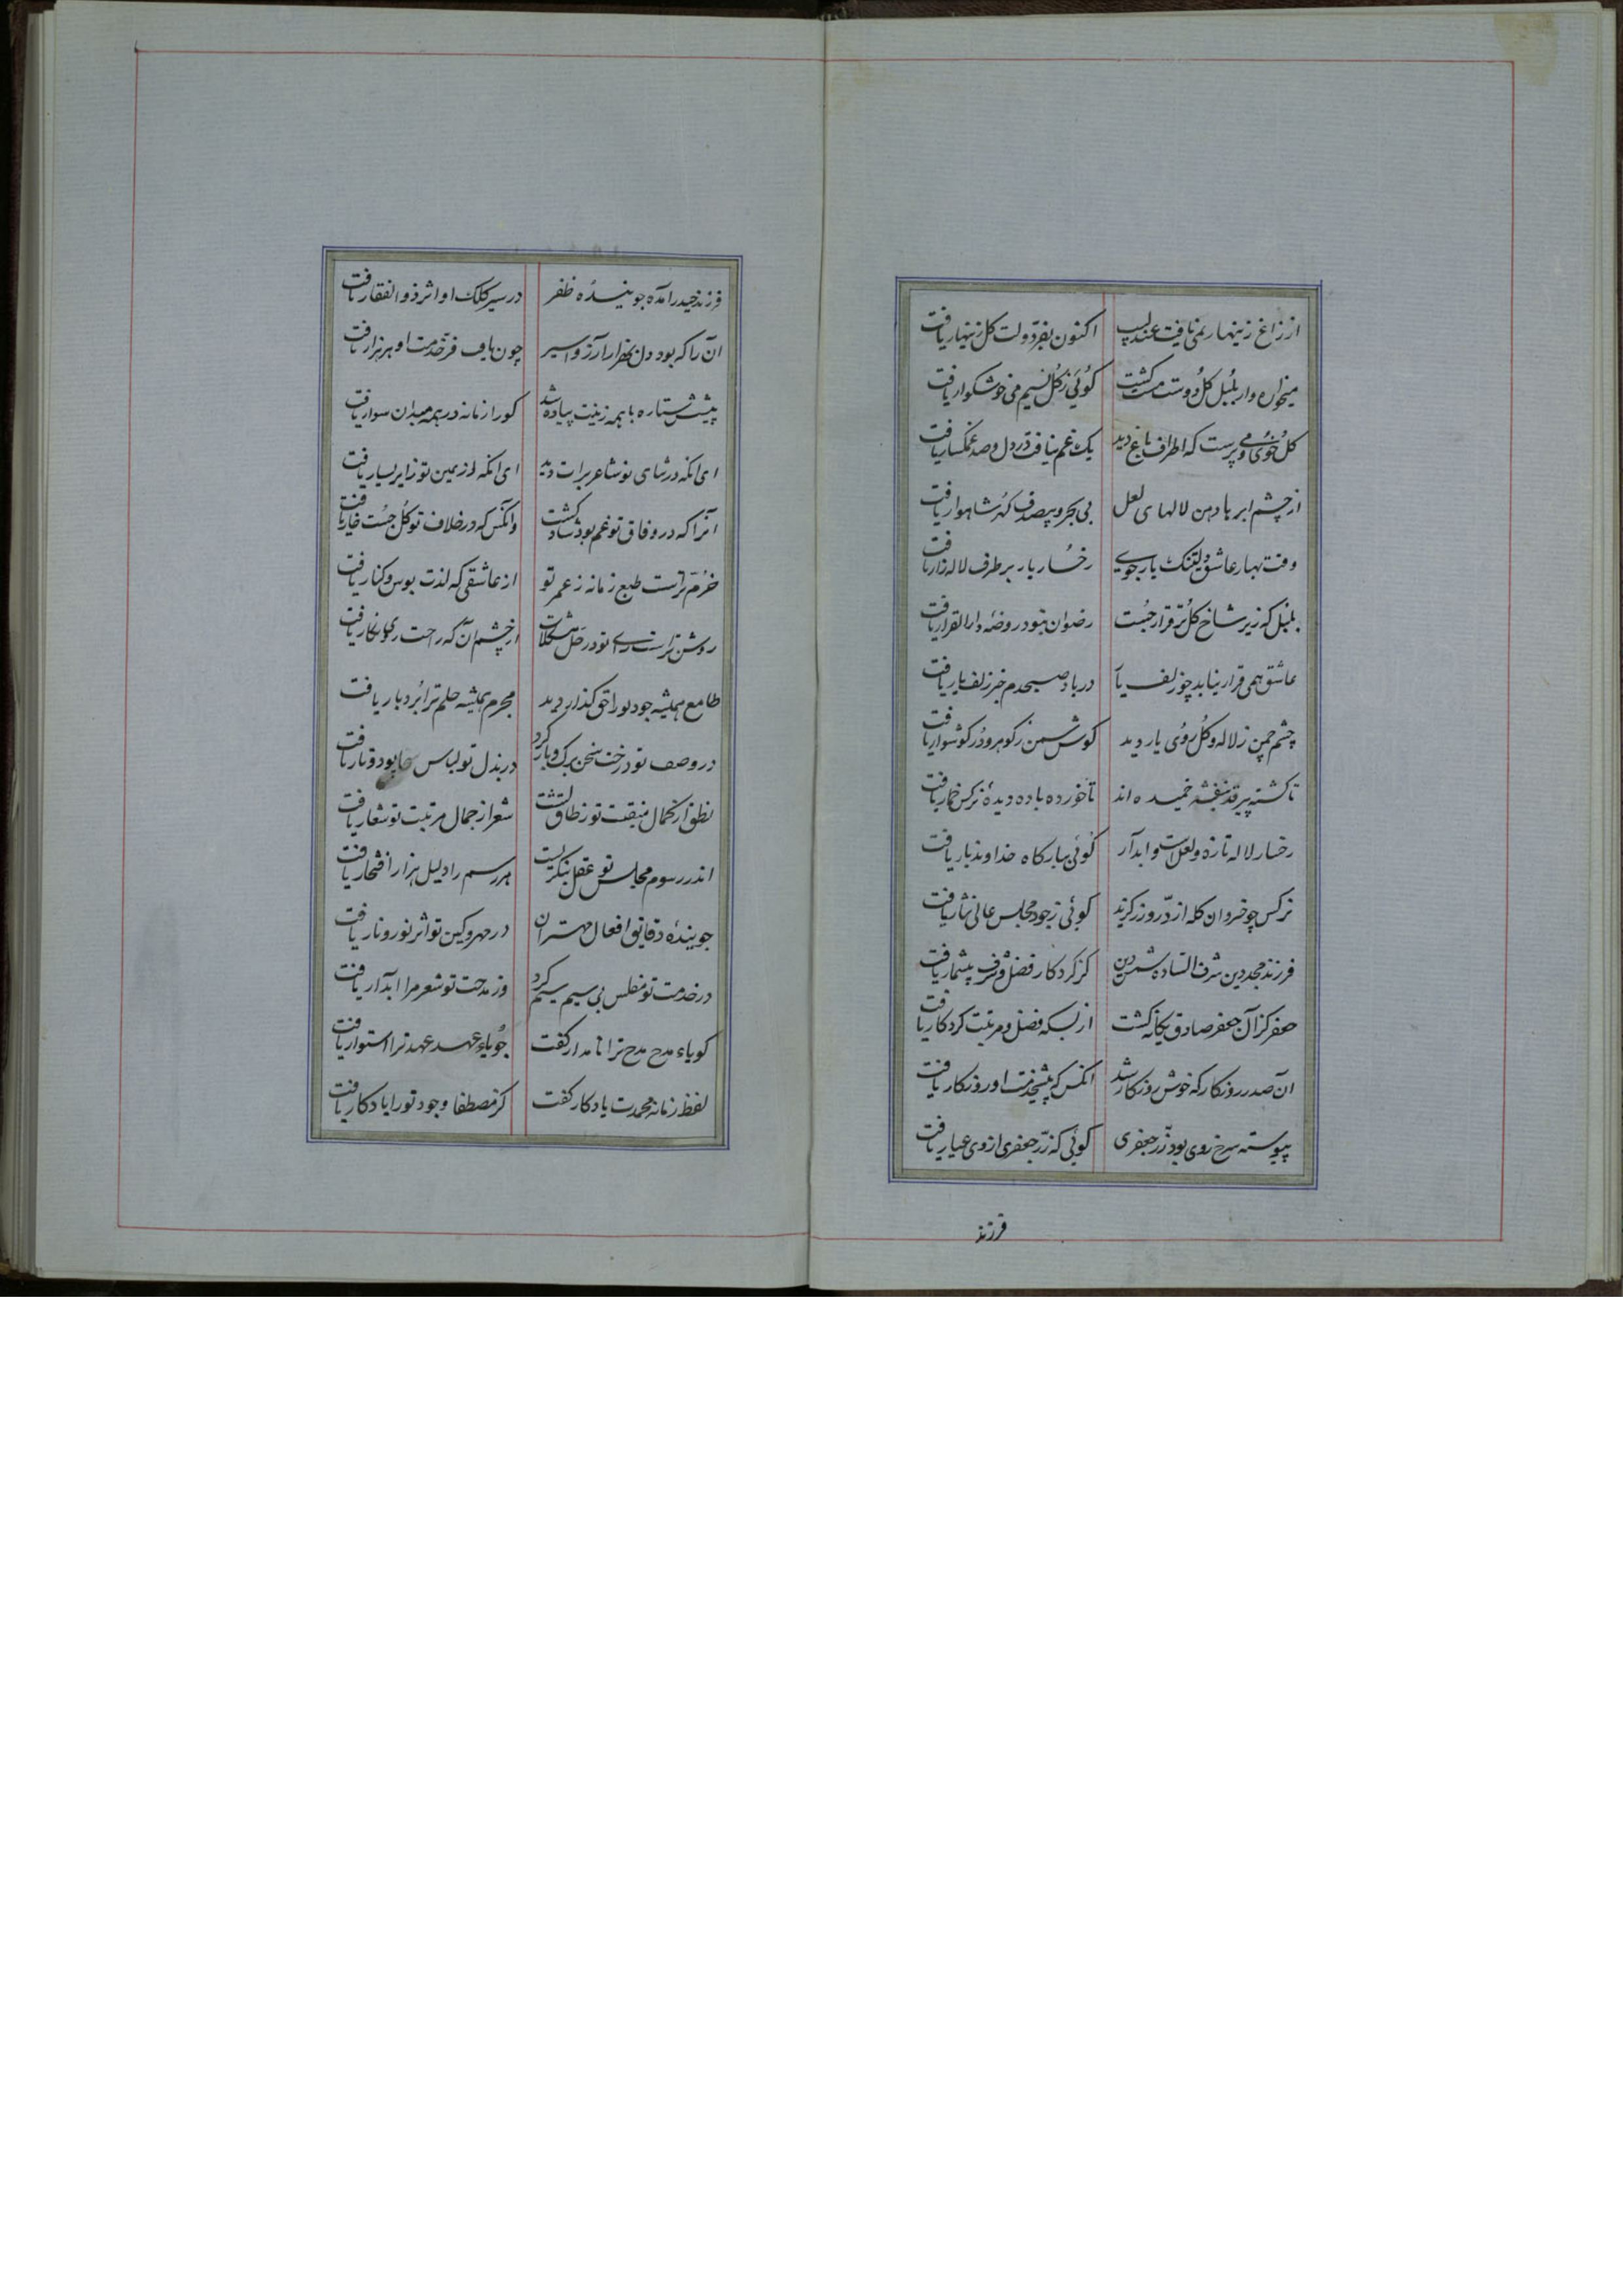 از زاغ زینهار نمی یافت عندلیب اکنون بفرّ دولت کل زینهار یافت
میخواره وار بلبل کل دوست مست کشت کوئی ز کل نسیم می خوشکوار یافت
کل خوی می پرست که اطراف باغ دید یک غم نیافت در دل و صد غمکسار یافت
از چشم ابر باد بهن لالهای لعل بی بحر و بی صدف کهر شاهوار یافت
وقت بهار عاشق دلتنک یار جوی رخسار یار بر طرف لاله زار یافت
بلبل که زیر شاخ کل تر قرار جست رضوان نبود روضه دار القرار یافت
عاشق همی قرار نیابد چو زلف یار در باد صبحدم خبر زلف یار یافت
چشم چمن ز لاله و کل روی یار دید کوش سمن ز کوهر و در کوشوار یافت
تا کشته پیر قد بنفشه خمیده اند ناخورده باده دیدهٔ نرکس خمار یافت
رخسار لاله تازه و لعلست و ابدار کوئی ببارکاه خداوند بار یافت
نرکس چو خسروان کله از درّ و زر کزید کوئی ز جود مجلس عالی نثار یافت
فرزند مجد دین شرف الساده شمس دین کز کردکار فضل و شرف بیشمار یافت
جعفر کز آن جعفر صادق یکانه کشت از بسکه فضل و مرتبت کردکار یافت
ان صدر روزکار که خوش روزکار شد انکس که پیش خدمت او روزکار یافت
پیوسته سرخ روی بود زرّ جعفری کوئی که زرّ جعفری از وی عیار یافت
فرزند
فرزند حیدر آمده جویندهٔ ظفر در سیر کلک او اثر ذو الفقار یافت
آن را که بود دل بهزار آرزو اسیر چون یافت فرّ خدمت او هر هزار یافت
پیشش ستاره با همه زینت پیاده شد کورا زمانه در همه میدان سوار یافت
ای انکه در ثنای تو شاعر برات دید ای انکه از یمین تو زایر یسار یافت
آنرا که در وفاق تو غم بود شاد کشت وانکس که در خلاف تو کل جست خار یافت
خرّم ترست طبع زمانه ز عمر تو از عاشقی که لذت بوس و کنار یافت
روشن ترست رای تو در حلّ مشکلات از چشم آن که راحت روی نکار یافت
طامع همیشه جود تورا حق کذار دید مجرم همیشه حلم ترا بردبار یافت
در وصف تو درخت سخن برک و بار کرد در بذل تو لباس سخا پود و تار یافت
نطق از کمال منقبت تو ز طاق کشت شعر از جمال مرتبت تو شعار یافت
اندر رسوم مجلس تو عقل بنکریست هر رسم را دلیل هزار افتخار یافت
جویندهٔ دقایق افعال مهتران در مهر و کین تو اثر نور و نار یافت
در خدمت تو مفلس بی سیم سیم کرد وز مدحت تو شعر مرا ابدار یافت
کویاء مدح مدح ترا نامدار کفت جویاء عهد عهد ترا استوار یافت
لفظ زمانه محمدت یادکار کفت کز مصطفا وجود تورا یادکار یافت